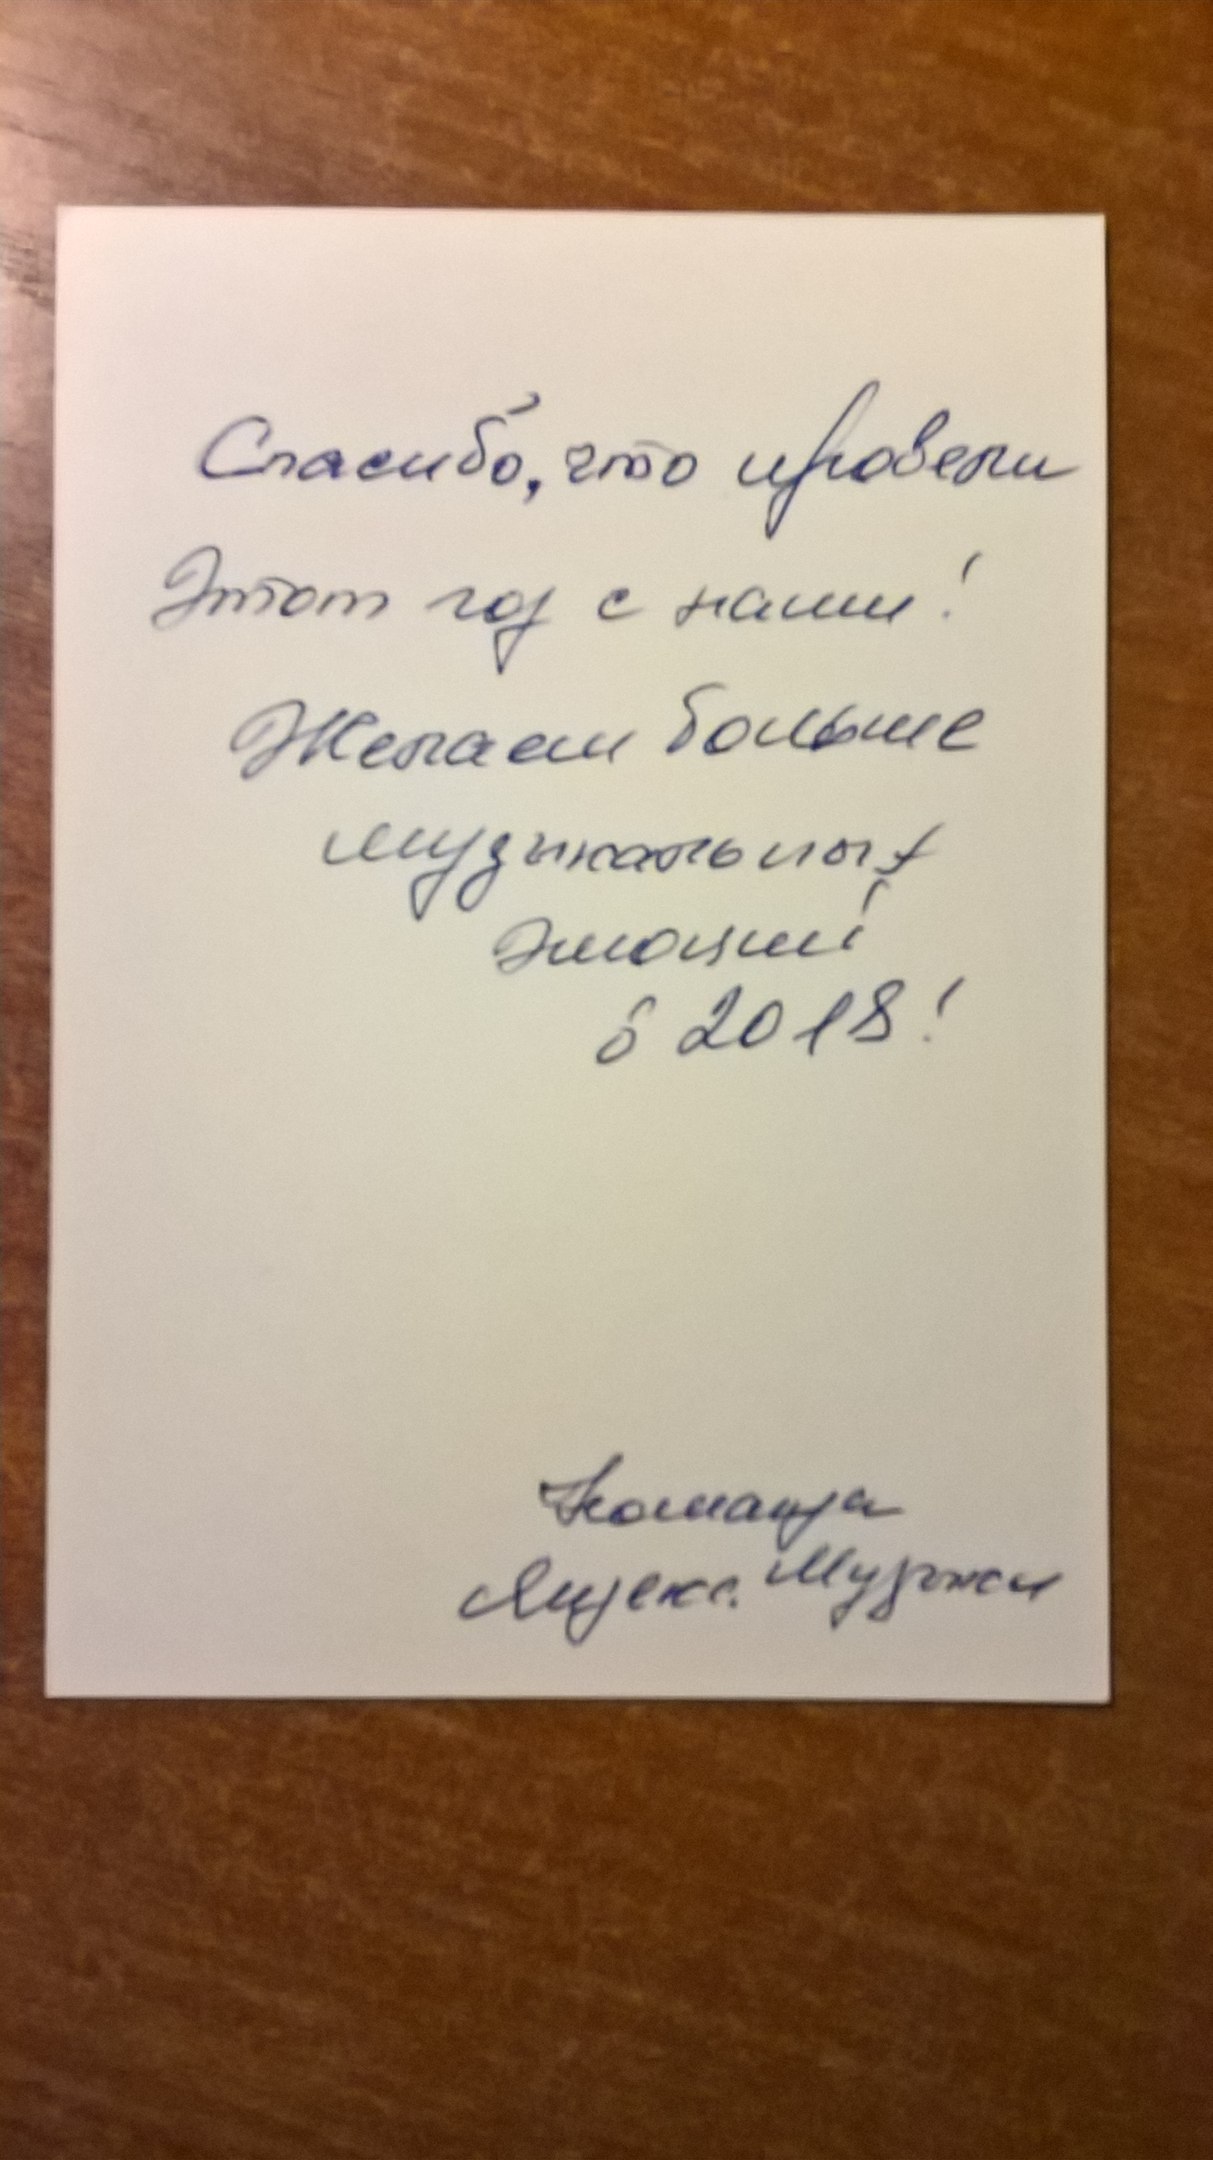 Спасибо, что провели
Этот год с нами!
Желаем больше
музыкальных
эмоций
в 2018!
Команда
Яндекс.Музыки